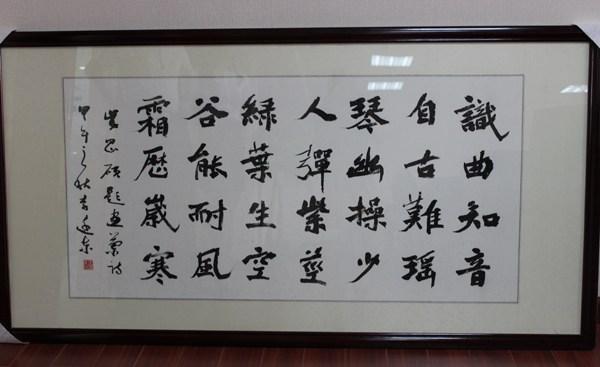 識曲知音
自古難瑶
琴幽操少
人彈紫莖
綠葉生空
谷能耐風
霜歷歲寒
題画蘭诗
甲午之秋